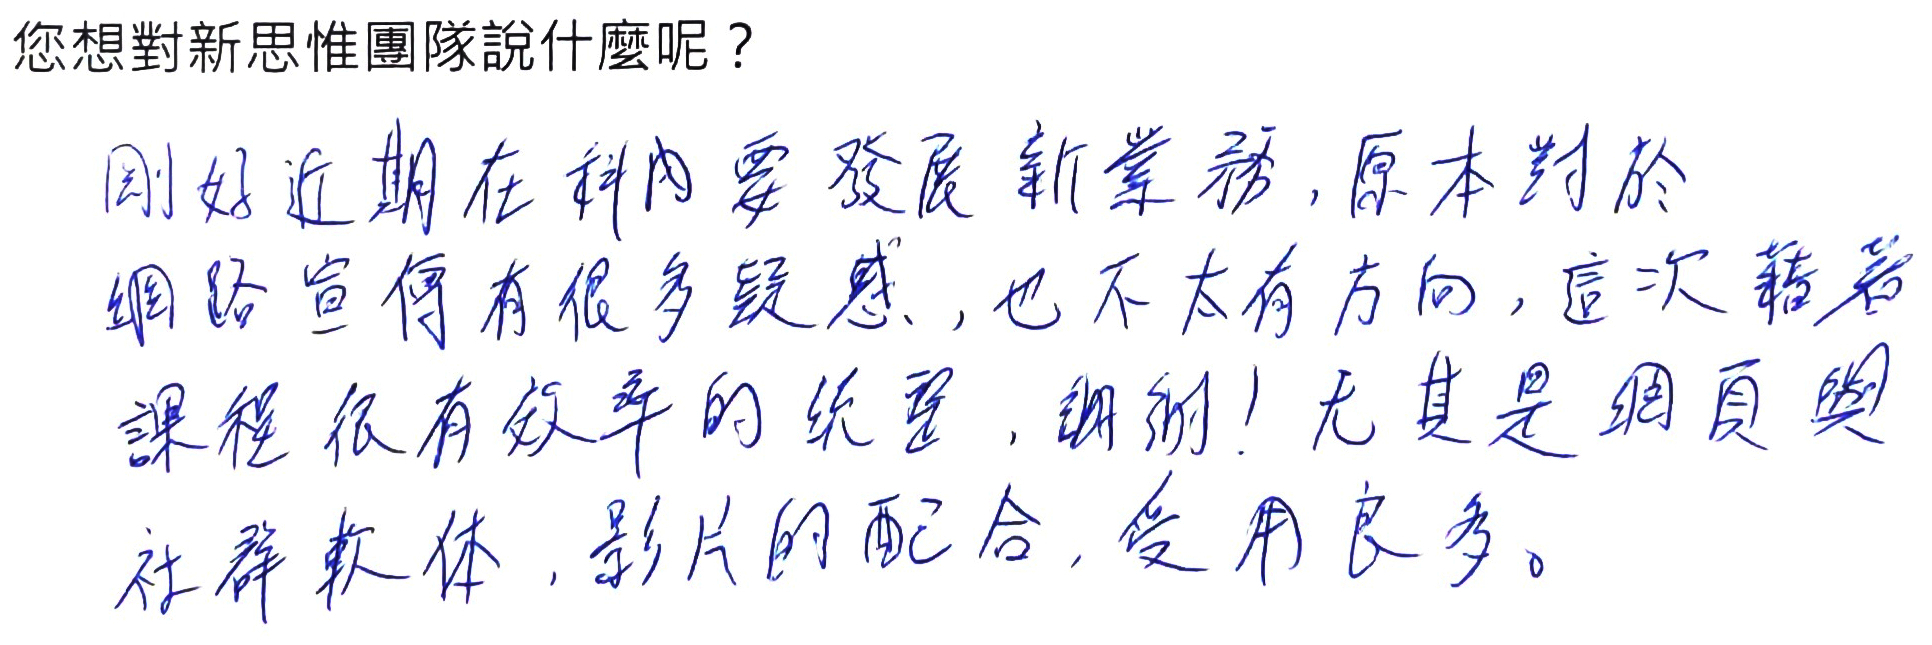 您想對新思惟團隊說什麼呢？
剛好近期在科內要發展新業務，原本對於
網路宣傳有很多疑惑，也不太有方向，這次藉著
課程很有效率的統整，謝謝！尤其是網頁與
社群軟体，影片的配合，受用良多。